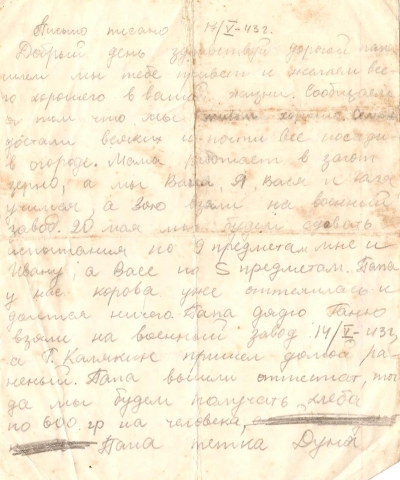 Письмо писано 17/V-43г.
Добрый день здравствуй дорогой папа
шлем мы тебе привет и желаем все-
го хорошего в вашей жизни. Сообщаем
тем что мы живем хорошо. Семян
достали всяких и почти все посадили
в огороде. Мама работает в загот
зерно, а мы Ваня, Я, Вася и Катя
учимся, а Зою взяли на военный
завод. 20 мая мы будем сдавать
испытания по 9 предметам мне и
Ивану, а Васе по 5 предметам. Папа
у нас корова уже отелилась и
доится ничего. Папа дядю Ганю
взяли на военный завод 14/V-43г
а Г. Калякин пришел домой ра-
неный. Папа вышли аттестат, то-
да мы будем получать хлеба
по 600 гр на человека,
Папа тетка Дуня